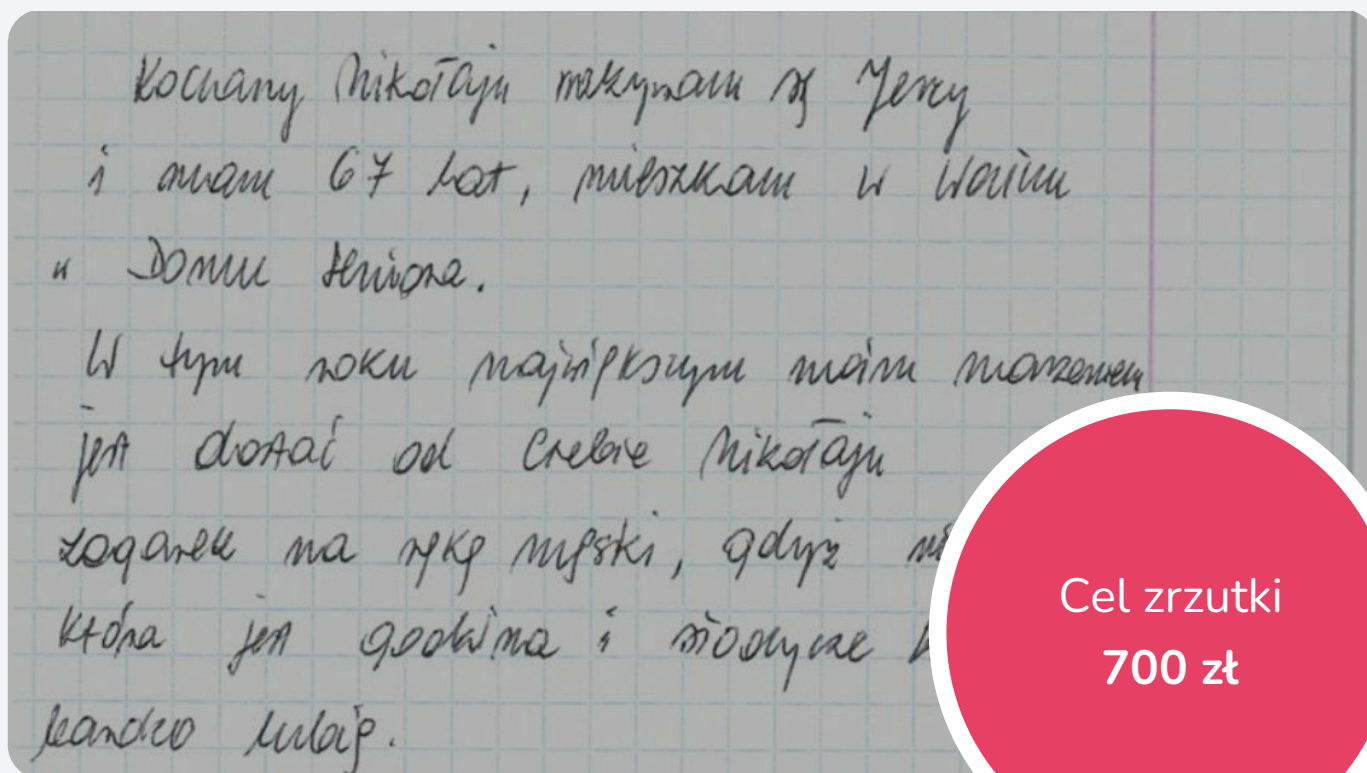 Kochany Mikołaju nazywam się Jerzy
i mam 67 lat, mieszkam w
w Domu Seniora.
W tym roku największym moim marzeniem
jest dostać od Ciebie Mikołaju
zegarek na rękę męski, gdyż
która jest godzina i słodycze
bardzo lubię.
Cel zrzutki
700 zł